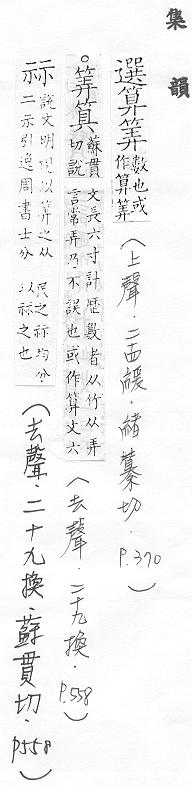 集韻
選算筭數也或作算筭(上聲.二十四緩.緒纂切.P.370)
。筭算蘇貫切說文長六寸計歷數者从竹从弄言常弄乃不誤也或作算文六(去聲.二十九換.P.558)
祘說文明視以筭之从二示引逸周書士分民之祘均分以祘之也(去聲.二十九換.蘇貫切.P558)